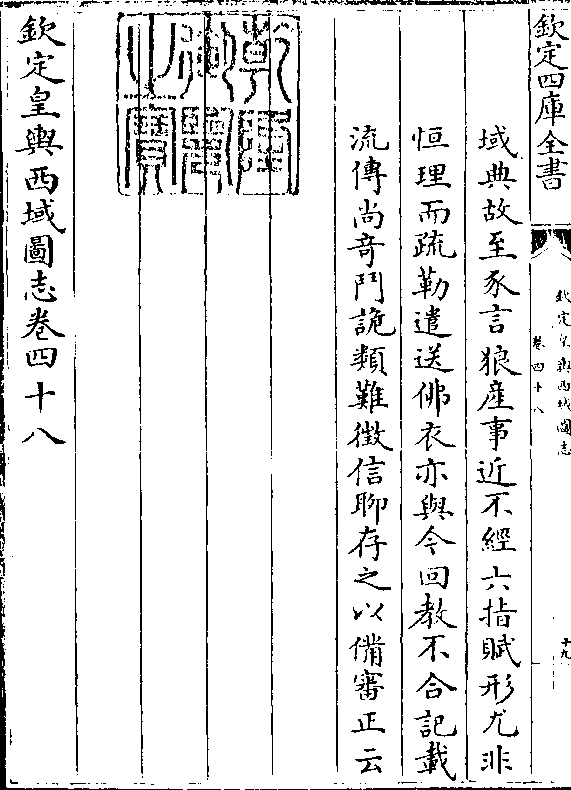 欽定四庫全書
欽定皇輿西域圖志
卷四十八
十九
域典故至豕言狼產事近不經六指賦形尤非
恒理而疏勒遣送佛衣亦與今回教不合記載
流傳尚奇鬥詭類難徵信聊存之以備審正云
乾隆御覽之寶
欽定皇輿西域圖志卷四十八